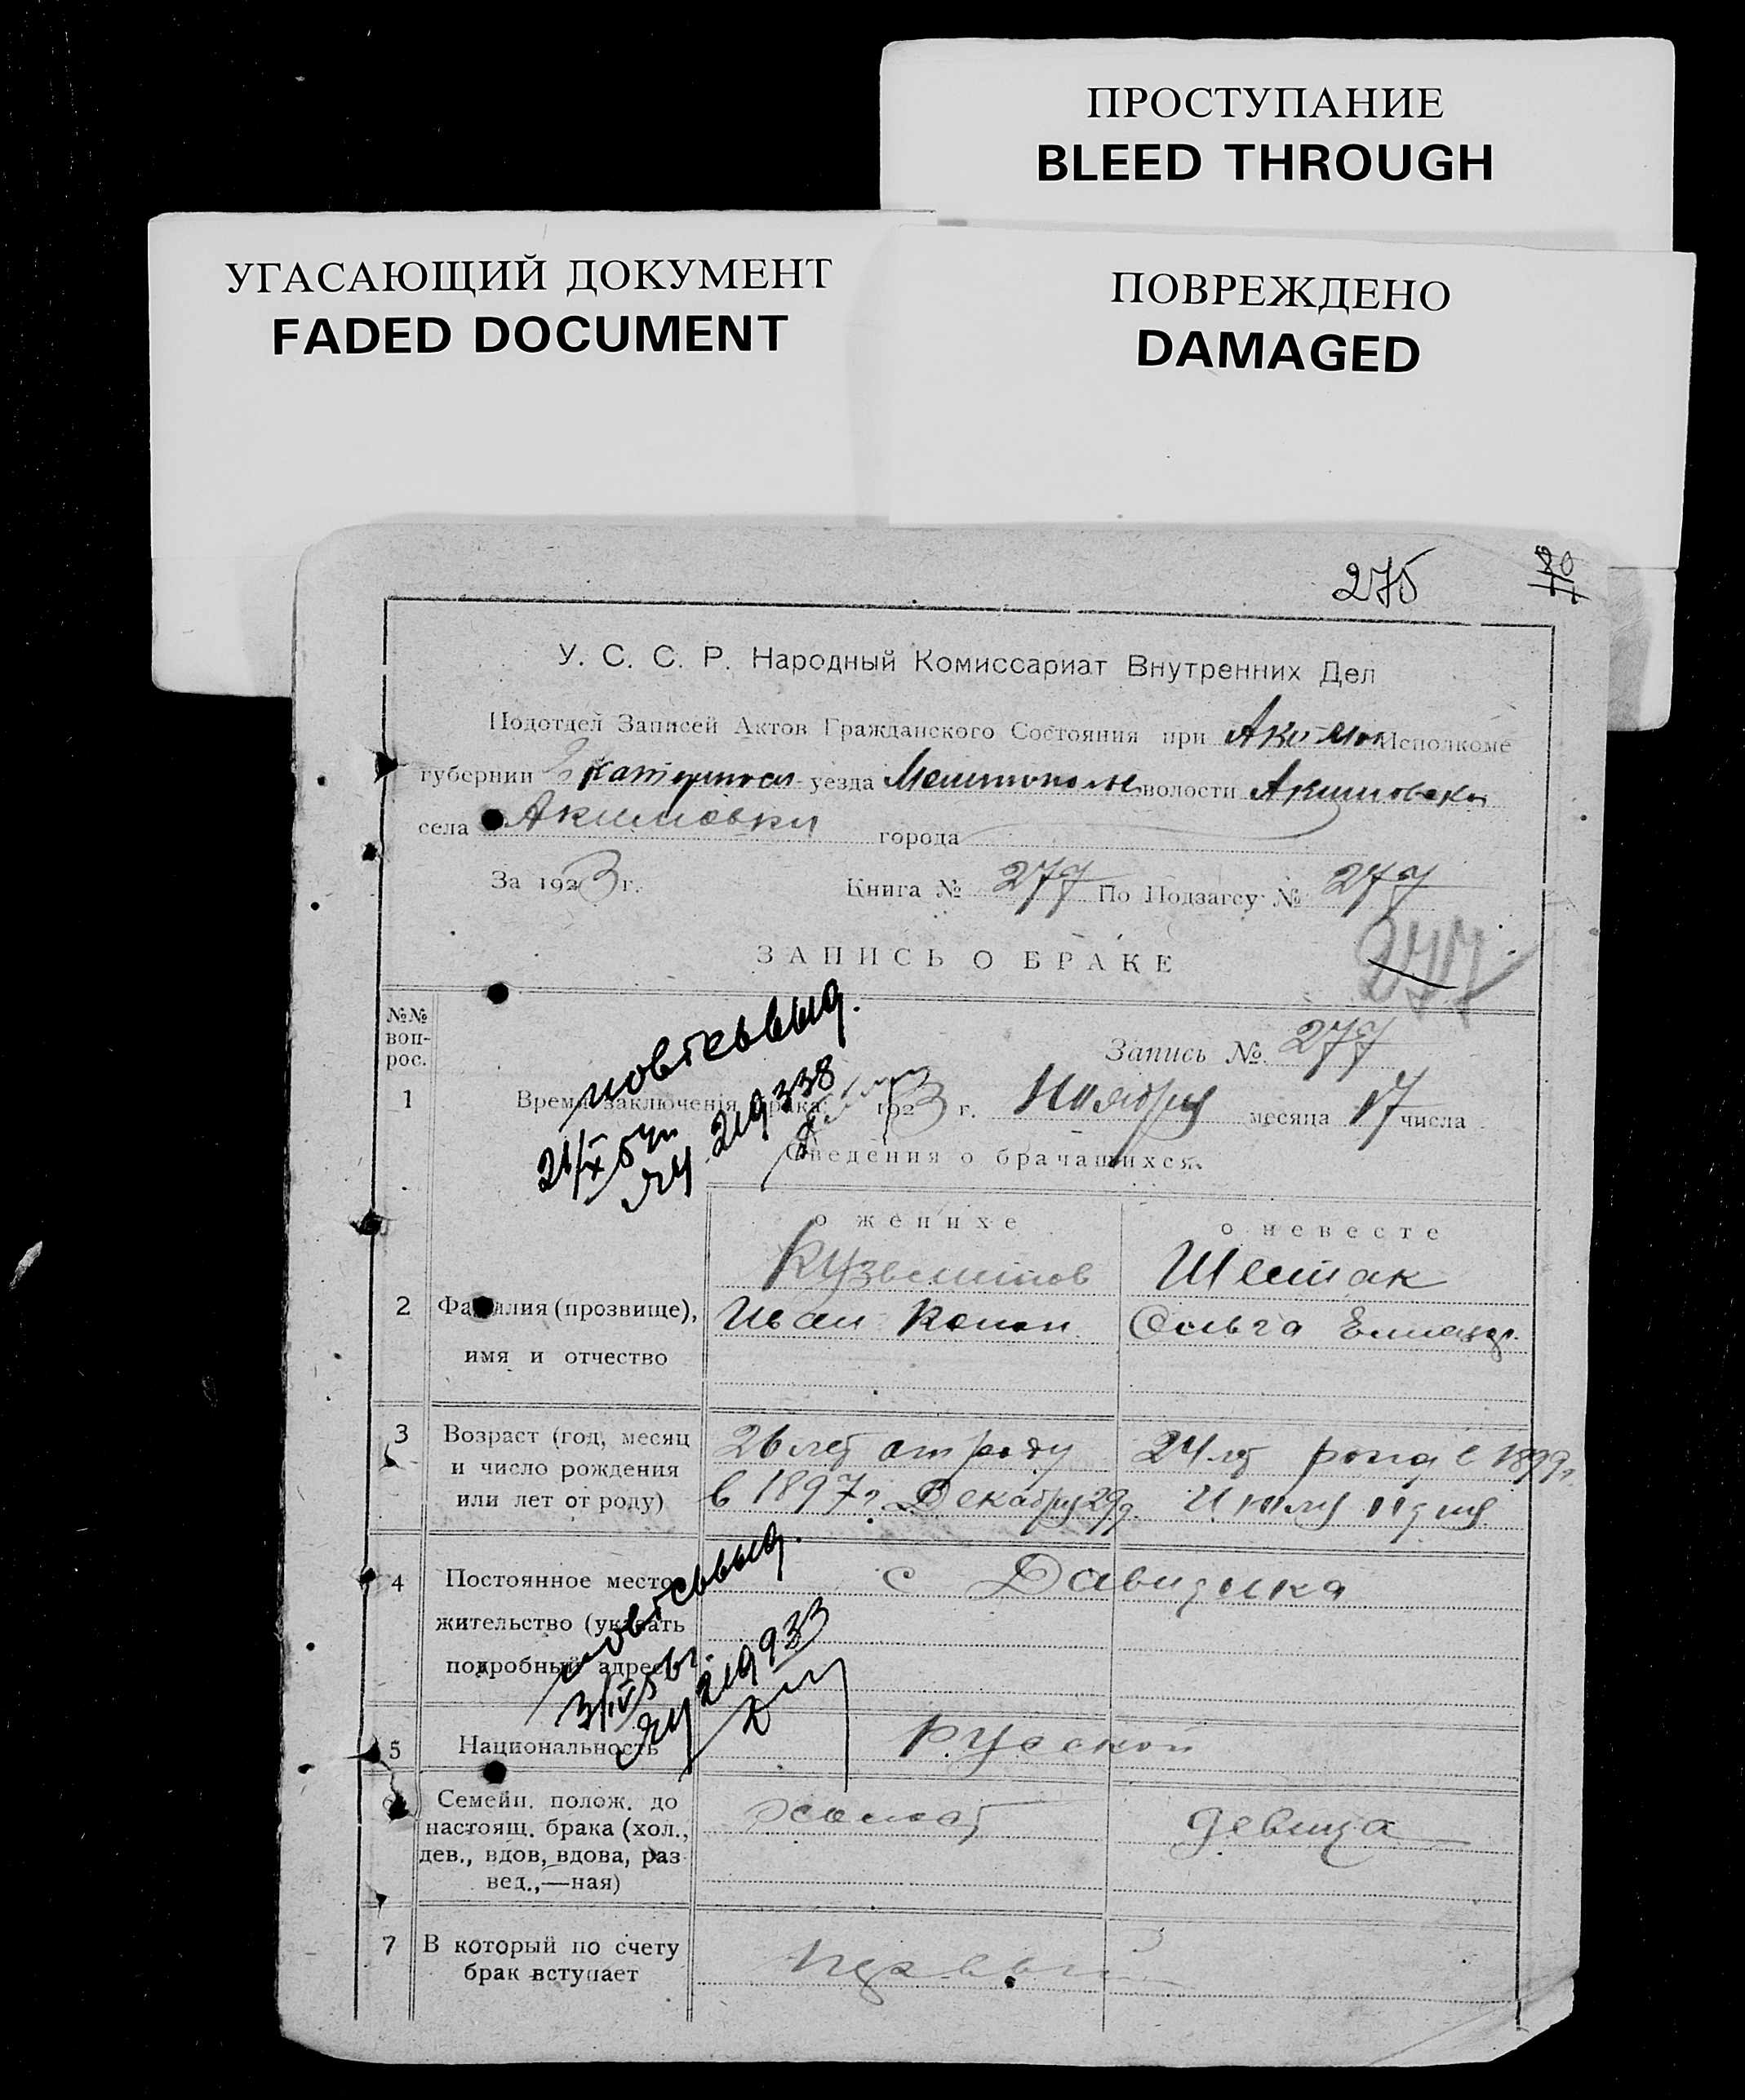 ПРОСТУПАНИЕ
BLEED THROUGH
УГАСАЮЩИЙ ДОКУМЕНТ
FADED DOCUMENT
ПОВРЕЖДЕНО
DAMAGED
275
У. С. С. Р. Народный Комиссариат Внутренних Дел
Подотдел Записей Актов Гражданского Состояния при Акимов Исполкоме
губернии уезда Мелитополь волости Акимовской
села Акимовки города
За 1923 г. Книга № 277 По Подзагсу № 277
277
ЗАПИСЬ О БРАКЕ
№№ вопрос.
Запись № 277
1 Время заключения брака: 1923 г. Ноября месяца 17 числа
повт св выд.
219338
Сведения о брачащихся.
о женихе о невесте
Кузьминов Шестак
2 Фамилия (прозвище), Иван Ольга
имя и отчество
3 Возраст (год, месяц 26 лет от роду 24 лет 1899г
и число рождения
или лет от роду) в 1897г. Декабря 29д. Июля 11 дня
4 Постоянное место- с Давидовка
жительство (указать
подробный адрес)
повт св выд.
219933
5 Национальность Русской
6 Семейн. полож. до холост девица
настоящ. брака (хол.,
дев., вдов, вдова, раз-
вед.,—ная)
7 В который по счету первый
брак вступает